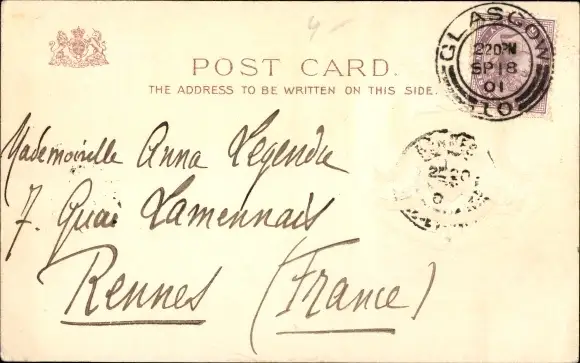 4-
POST CARD.
THE ADDRESS TO BE WRITTEN ON THIS SIDE.
GLASGOW
2 20PM
SP 18
01
10
Mademoiselle Anna Legendre
7. Quai Lamennais
Rennes (France)
RENNES
20